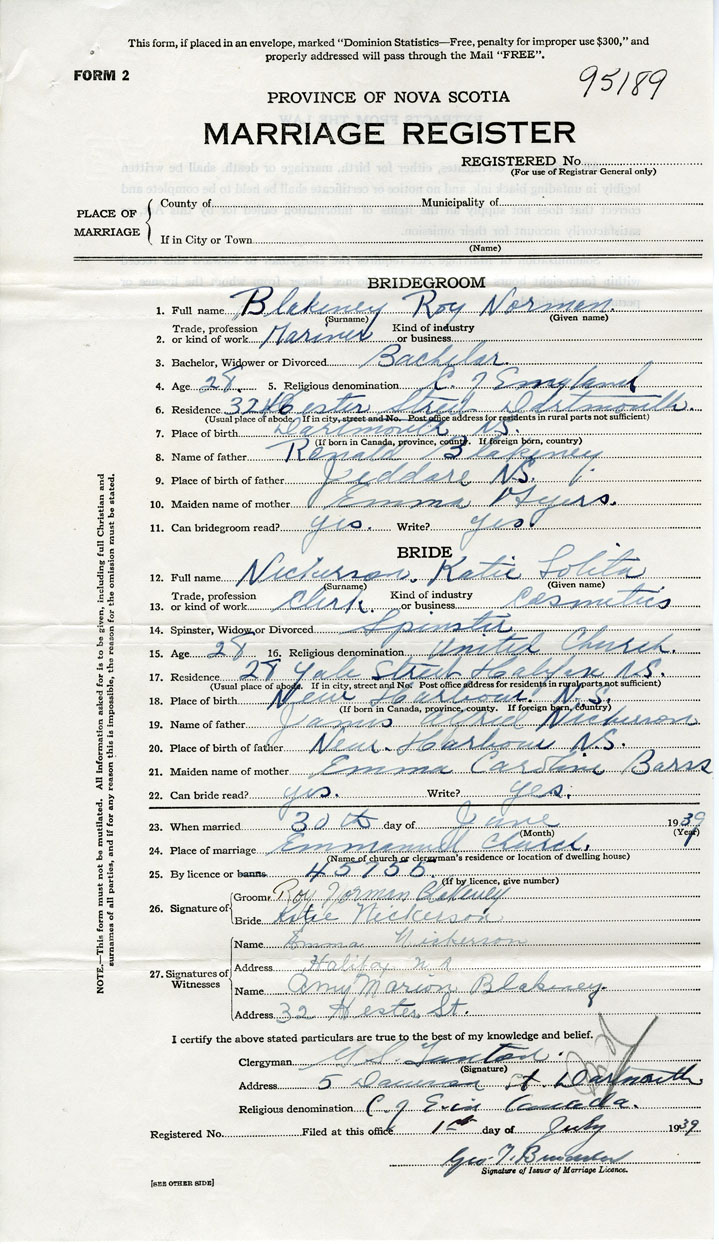 This form, if placed in an envelope, marked "Dominion Statistics—Free, penalty for improper use $300," and
properly addressed will pass through the Mail "FREE".
FORM 2
95189
PROVINCE OF NOVA SCOTIA
MARRIAGE REGISTER
REGISTERED No.
(For use of Registrar General only)
PLACE OF MARRIAGE
County of Municipality of
If in City or Town
(Name)
BRIDEGROOM
1. Full name Blakeney Roy Norman.
(Surname) (Given name)
2. Trade, profession or kind of work Mariner Kind of industry or business
3. Bachelor, Widower or Divorced Bachelor.
4. Age 28. 5. Religious denomination C. of England
6. Residence 32 Hester Street Dartmouth.
(Usual place of abode. If in city, street and No. Post office address for residents in rural parts not sufficient)
7. Place of birth Dartmouth N.S.
(If born in Canada, province, county. If foreign born, country)
8. Name of father Ronald Blakeney
9. Place of birth of father Jeddore N.S.
10. Maiden name of mother Emma
11. Can bridegroom read? yes. Write? yes
BRIDE
12. Full name Nickerson, Katie Lolita
(Surname) (Given name)
13. Trade, profession or kind of work Clerk. Kind of industry or business Cosmetics
14. Spinster, Widow or Divorced Spinster
15. Age 28 16. Religious denomination United Church.
17. Residence 28 Yale Street Halifax N.S.
(Usual place of abode. If in city, street and No. Post office address for residents in rural parts not sufficient)
18. Place of birth New Harbour. N.S.
(If born in Canada, province, county. If foreign born, country)
19. Name of father James Alfred Nickerson
20. Place of birth of father New. Harbour N.S.
21. Maiden name of mother Emma Caroline Barss
22. Can bride read? yes. Write? yes.
23. When married 30th day of June 1939
(Month) (Year)
24. Place of marriage Emmanuel Church.
(Name of church or clergyman's residence or location of dwelling house)
25. By licence or banns 45755.
(If by licence, give number)
26. Signature of
Groom Roy Norman Blakeney
Bride Katie Nickerson
27. Signatures of Witnesses
Name Emma Nickerson
Address Halifax N.S.
Name Amy Marion Blakeney.
Address 32 Hester St.
I certify the above stated particulars are true to the best of my knowledge and belief.
Clergyman
(Signature)
Address 5 St Dartmouth
Religious denomination C. of E. in Canada.
Registered No. Filed at this office 1st day of July 1939
Geo. T.
Signature of Issuer of Marriage Licence.
[SEE OTHER SIDE]
NOTE.—This form must not be mutilated. All information asked for is to be given, including full Christian and
surnames of all parties, and if for any reason this is impossible, the reason for the omission must be stated.